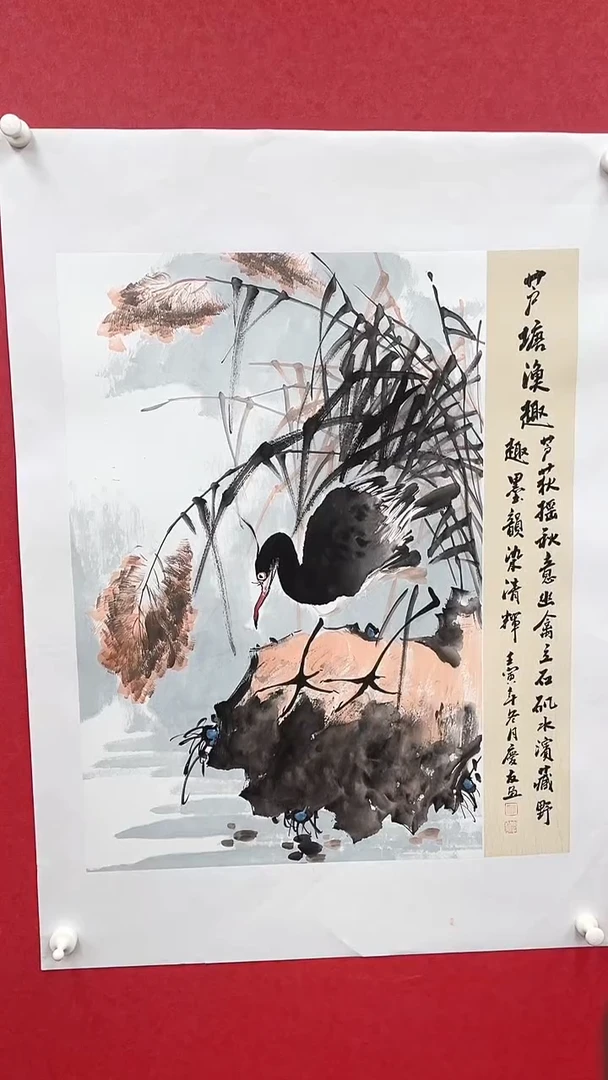 芦塘渔趣
芦荻摇秋意幽禽立石矶水滨藏野
趣墨韵染清辉 壬寅年冬月庆友画